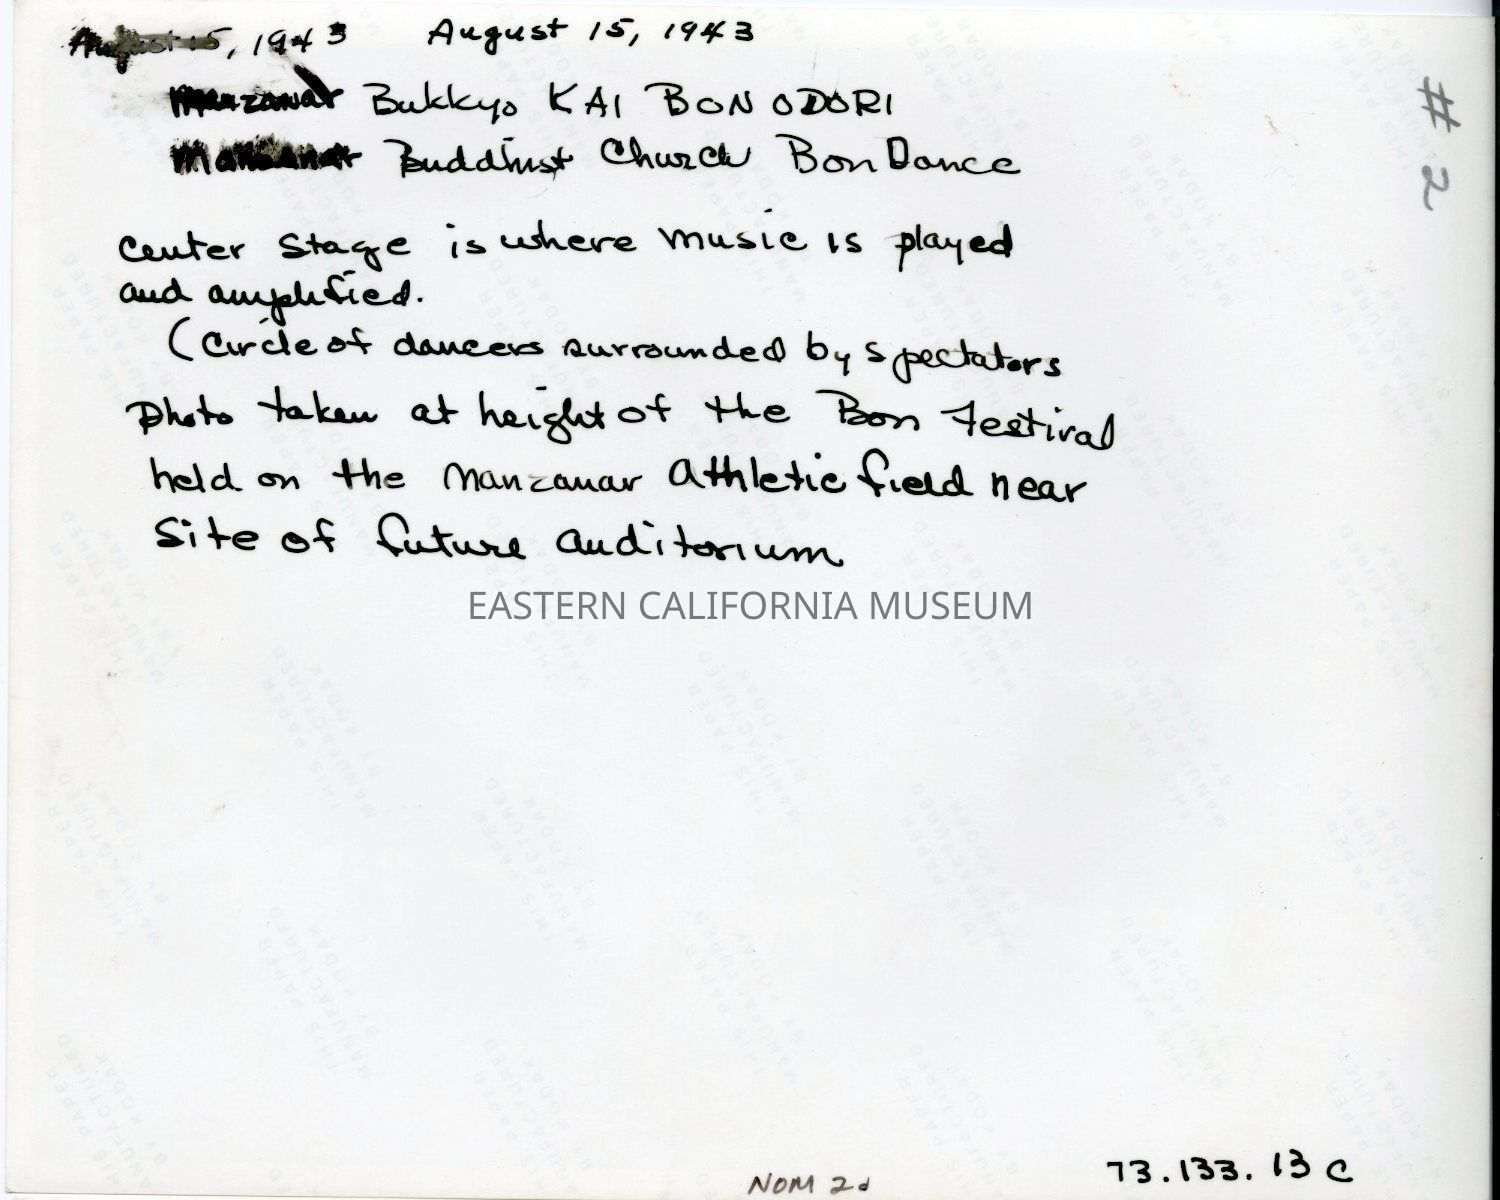 August 15, 1943 August 15, 1943
Manzanar Bukkyo KAI BON ODORI
Manzanar Buddhist Church Bon Dance
# 2
Center Stage is where music is played
and amplified.
(Circle of dancers surrounded by spectators
Photo taken at height of the Bon Festival
held on the Manzanar Athletic field near
Site of future auditorium
EASTERN CALIFORNIA MUSEUM
NOM 2d
73.133.13 c